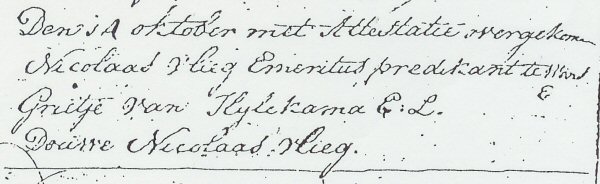 Den 1 oktober met Attestatie overgekomen
Nicolaas Vlieg Emeritus predikant te
Grietje van Hylckama E: L.
Douwe Nicolaas Vlieg.